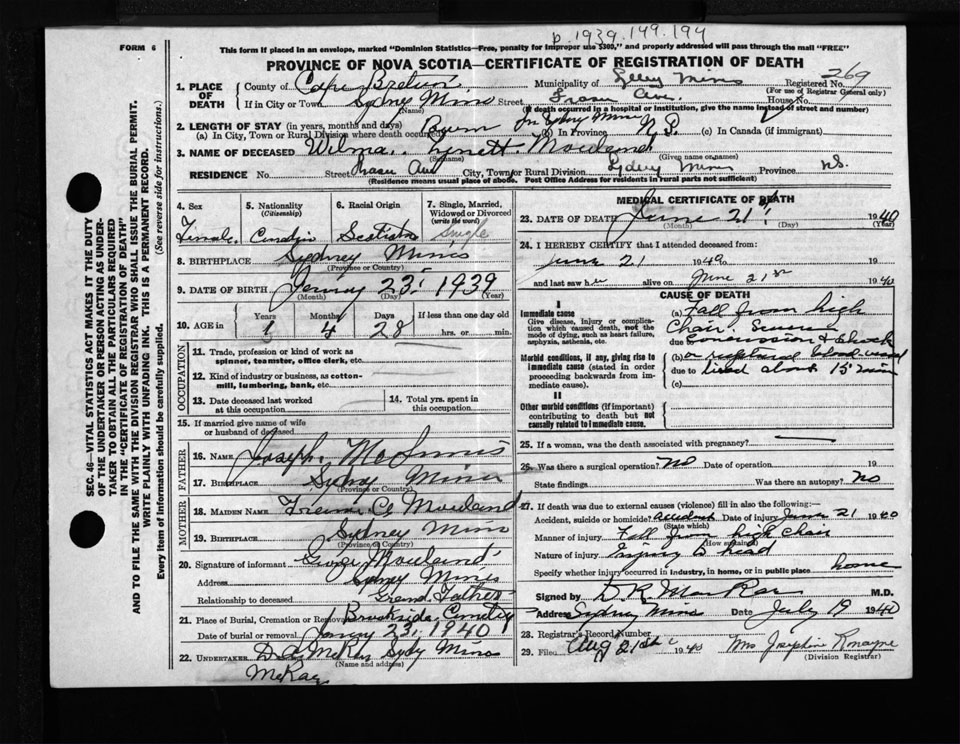 p. 1939.149.194
FORM 6
This form if placed in an envelope, marked "Dominion Statistics—Free, penalty for improper use $300," and properly addressed will pass through the mail "FREE"
PROVINCE OF NOVA SCOTIA—CERTIFICATE OF REGISTRATION OF DEATH
SEC. 46—VITAL STATISTICS ACT MAKES IT THE DUTY
OF THE UNDERTAKER OR PERSON ACTING AS UNDER-
TAKER TO OBTAIN ALL THE PARTICULARS REQUIRED
IN THE "CERTIFICATE OF REGISTRATION OF DEATH"
AND TO FILE THE SAME WITH THE DIVISION REGISTRAR WHO SHALL ISSUE THE BURIAL PERMIT.
WRITE PLAINLY WITH UNFADING INK. THIS IS A PERMANENT RECORD.
Every item of Information should be carefully supplied. (See reverse side for instructions.)
1. PLACE OF DEATH County of Cape Breton Municipality of Mines Registered No. 269
(For use of Registrar General only)
If in City or Town Sydney Mines Street Ave. House No.
(Name) (If death occurred in a hospital or institution, give the name instead of street and number)
2. LENGTH OF STAY (in years, months and days)
(a) In City, Town or Rural Division where death occurred Born In Sydney Mines (b) In Province N.S. (c) In Canada (if immigrant)
3. NAME OF DECEASED Wilma
(Surname) (Given name or names)
RESIDENCE No. Street Ave City, Town or Rural Division Sydney Mines Province N.S.
(Residence means usual place of abode. Post Office Address for residents in rural parts not sufficient)
4. Sex 5. Nationality (Citizenship) 6. Racial Origin 7. Single, Married, Widowed or Divorced (write the word)
Single
8. BIRTHPLACE Sydney Mines
(Province or Country)
9. DATE OF BIRTH 23 1939
(Month) (Day) (Year)
10. AGE in Years Months Days If less than one day old
1 4 28 hrs. or min.
OCCUPATION
11. Trade, profession or kind of work as spinner, teamster, office clerk, etc.
12. Kind of industry or business, as cotton-mill, lumbering, bank, etc.
13. Date deceased last worked at this occupation 14. Total yrs. spent in this occupation
15. If married give name of wife or husband of deceased
FATHER
16. Name Joseph McInnis
17. Birthplace Sydney Mines
(Province or Country)
MOTHER
18. Maiden Name
19. Birthplace Sydney Mines
(Province or Country)
20. Signature of informant George
Address Sydney Mines
Relationship to deceased Grand Father
21. Place of Burial, Cremation or Removal Brookside Cemetery
Date of burial or removal 23, 1940
22. UNDERTAKER McKay Sydney Mines
(Name and address)
McKay
MEDICAL CERTIFICATE OF DEATH
23. DATE OF DEATH June 21st 1940
(Month) (Day) (Year)
24. I HEREBY CERTIFY that I attended deceased from:
June 21 1940 to
and last saw her alive on June 21st 1940
CAUSE OF DEATH
I
Immediate cause
Give disease, injury or complication which caused death, not the mode of dying, such as heart failure, asphyxia, asthenia, etc.
(a) Fall from high
Chair.
due Concussion & Shock
Morbid conditions, if any, giving rise to immediate cause (stated in order proceeding backwards from immediate cause).
(b) or ruptured blood vessel
due to lived about 15 min
(c)
II
Other morbid conditions (if important) contributing to death but not causally related to immediate cause.
25. If a woman, was the death associated with pregnancy?
26. Was there a surgical operation? No Date of operation 19
State findings Was there an autopsy? No
27. If death was due to external causes (violence) fill in also the following:
Accident, suicide or homicide Accident Date of injury June 21 1940
(State which)
Manner of injury Fall from high chair
(How sustained)
Nature of injury Injury to head
Specify whether injury occurred in industry, in home, or in public place home
Signed by M.D.
Address Sydney Mines Date July 19 1940
28. Registrar's Record Number
29. Filed Aug 21st 1940 Mrs Josephine Romayne
(Division Registrar)